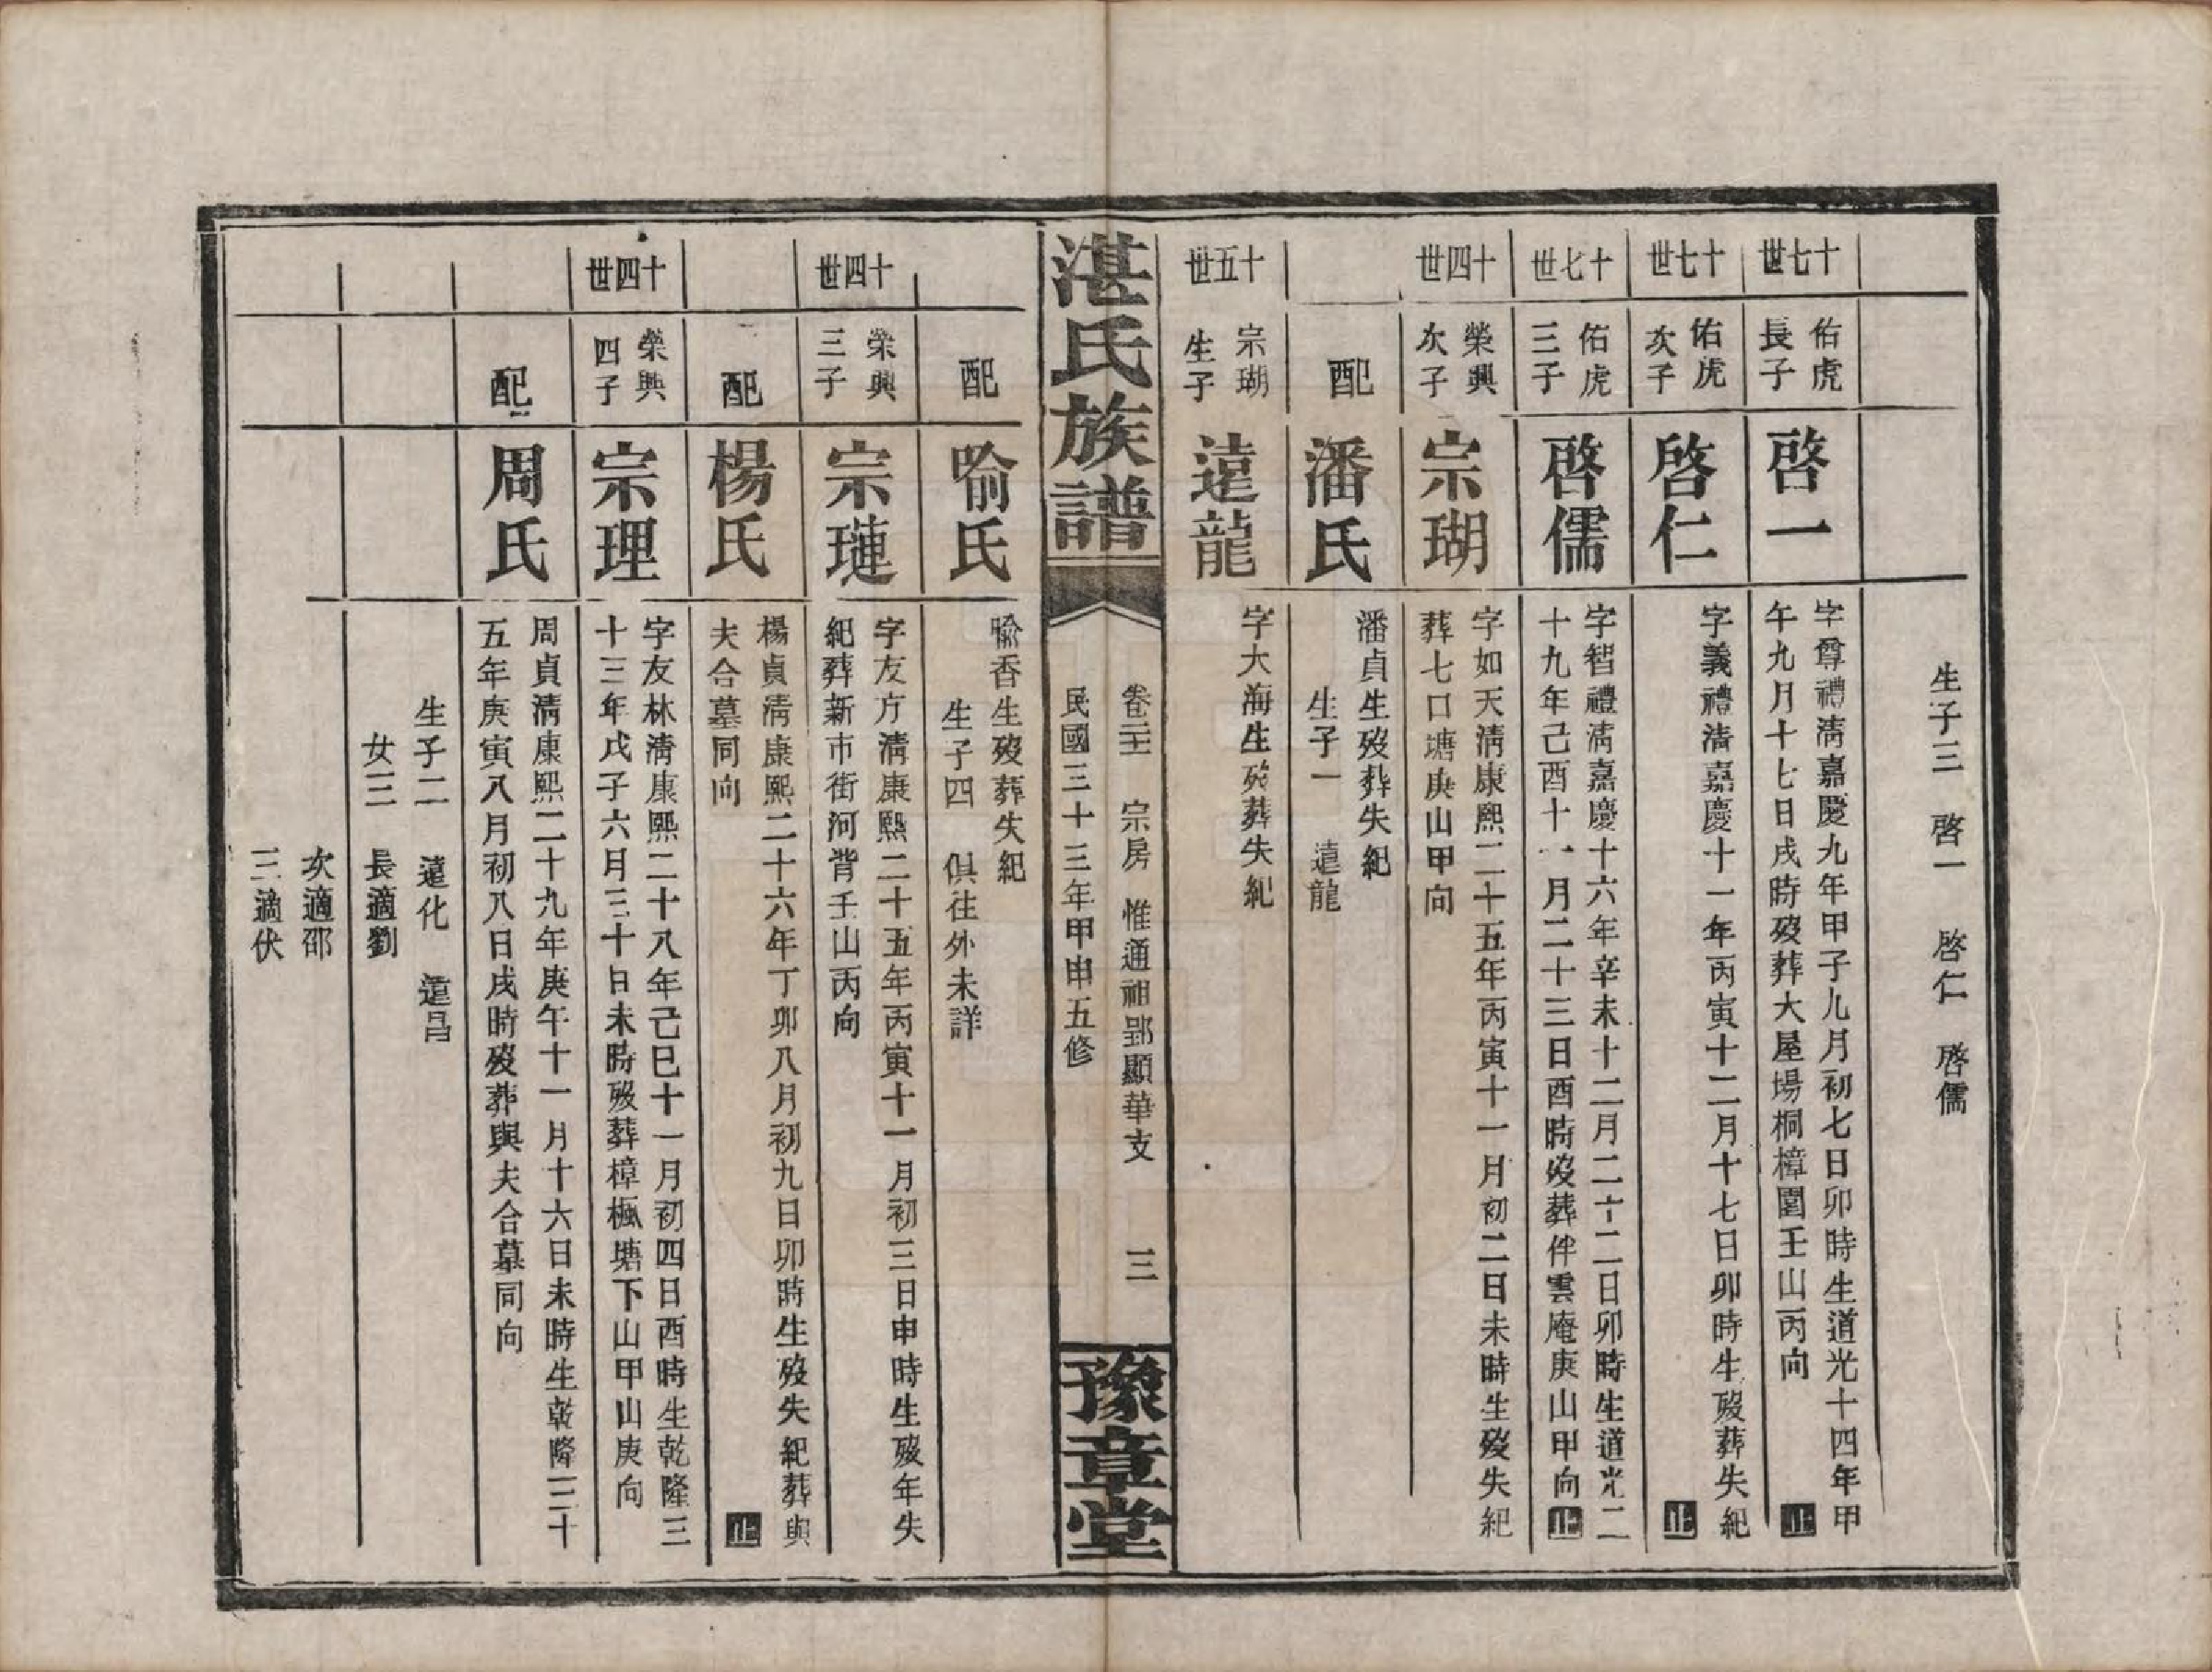 生子三　啓一　啓仁　啓儒
十七世
佑虎
長子
啓一
字尊禮淸嘉慶九年甲子九月初七日卯時生道光十四年甲
午九月十七日戌時歿葬大屋場桐樟園壬山丙向　止
十七世
佑虎
次子
啓仁
字義禮淸嘉慶十一年丙寅十二月十七日卯時生歿葬失紀
止
十七世
佑虎
三子
啓儒
字智禮淸嘉慶十六年辛未十二月二十二日卯時生道光二
十九年己酉十一月二十三日酉時歿葬伴雲庵庚山甲向　止
十四世
榮興
次子
宗瑚
字如天淸康熙二十五年丙寅十一月初二日未時生歿失紀
葬七口塘庚山甲向
配
潘氏
潘貞生歿葬失紀
生子一　遠龍
十五世
宗瑚
生子
遠龍
字大海生歿葬失紀
湛氏族譜
卷三　宗房　惟通祖郢顯華支　三
民國三十三年甲申五修
豫章堂
配
喻氏
喻香生歿葬失紀
生子四　俱往外未詳
十四世
榮興
三子
宗璉
字友方淸康熙二十五年丙寅十一月初三日申時生歿年失
紀葬新市街河背壬山丙向
配
楊氏
楊貞淸康熙二十六年丁卯八月初九日卯時生歿失紀葬與
夫合墓同向　止
十四世
榮興
四子
宗理
字友林淸康熙二十八年己巳十一月初四日酉時生乾隆三
十三年戊子六月三十日未時歿葬樟楓塘下山甲山庚向
配
周氏
周貞淸康熙二十九年庚午十一月十六日未時生乾隆三十
五年庚寅八月初八日戌時歿葬與夫合墓同向
生子二　遠化　遠昌
女三　長適劉
次適邵
三適伏